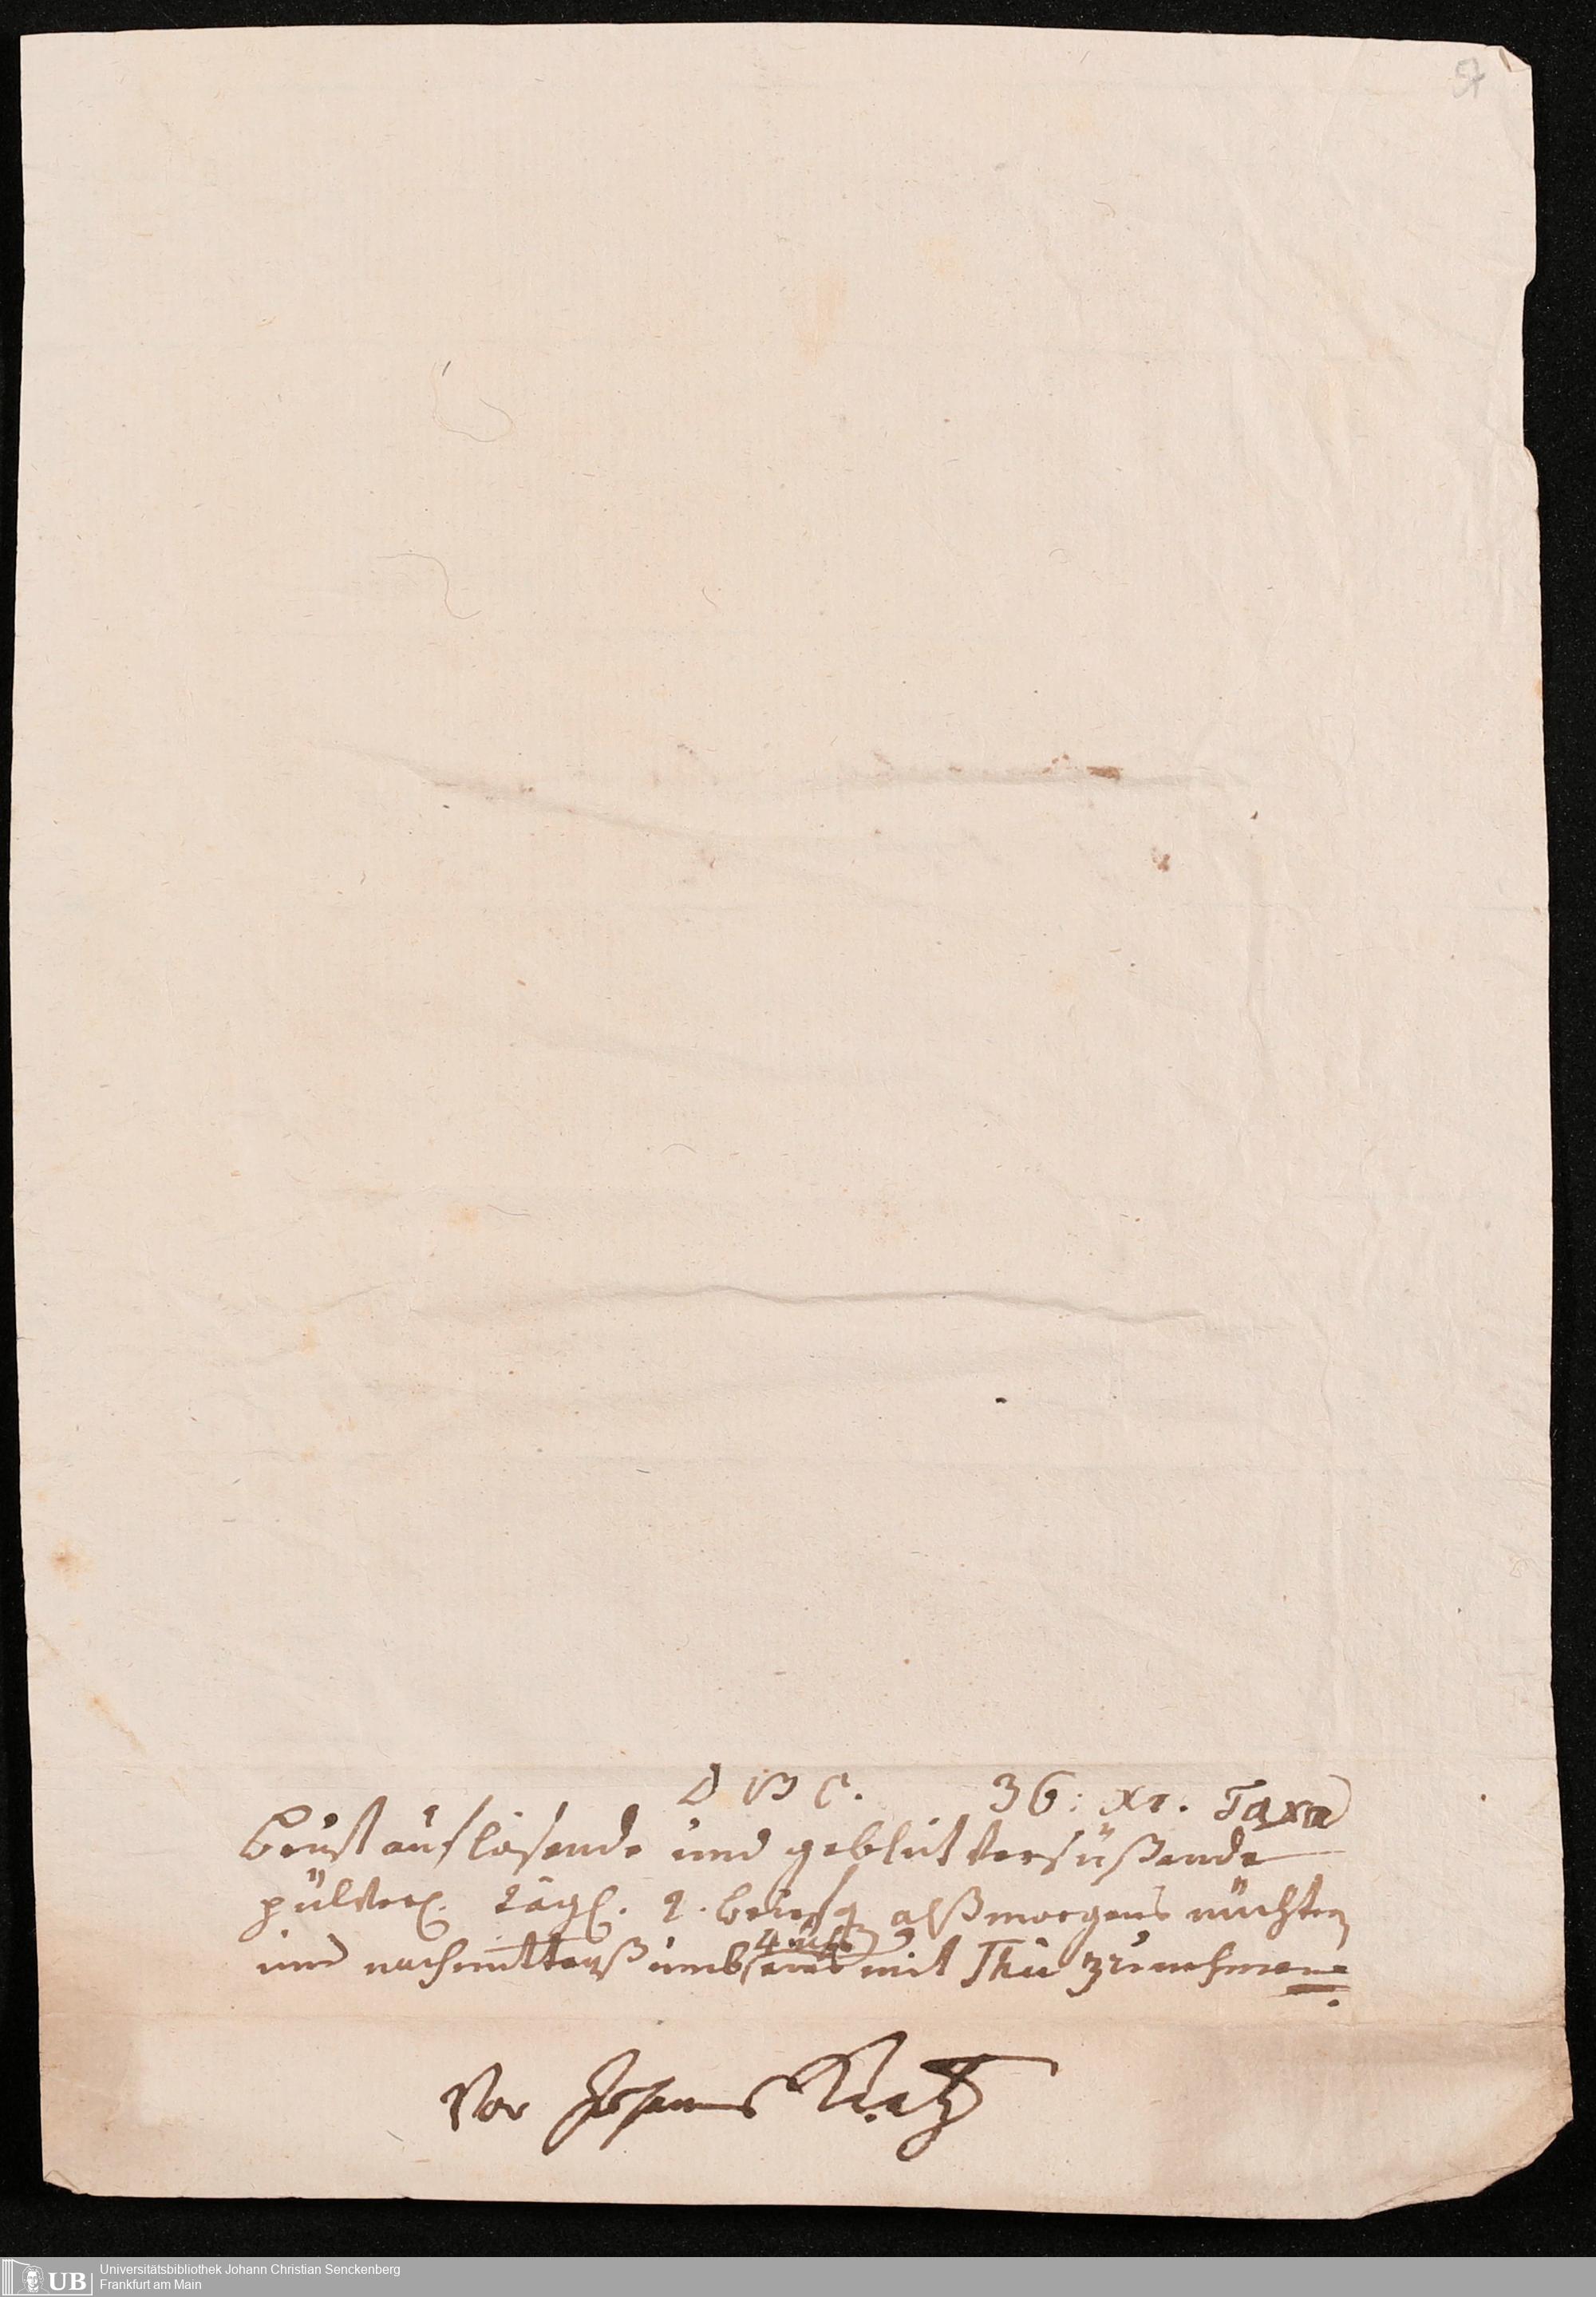 57
D B C. 36: xr. Taxa
brust auflösende und geblüt versüßende
pülver. Tägl. 2. briefg alß morgens nüchtern
4 uhr
und nachmittagß umb mit Thee zu nehmen.
Vor Johannes
Universitätsbibliothek Johann Christian Senckenberg
Frankfurt am Main
UB